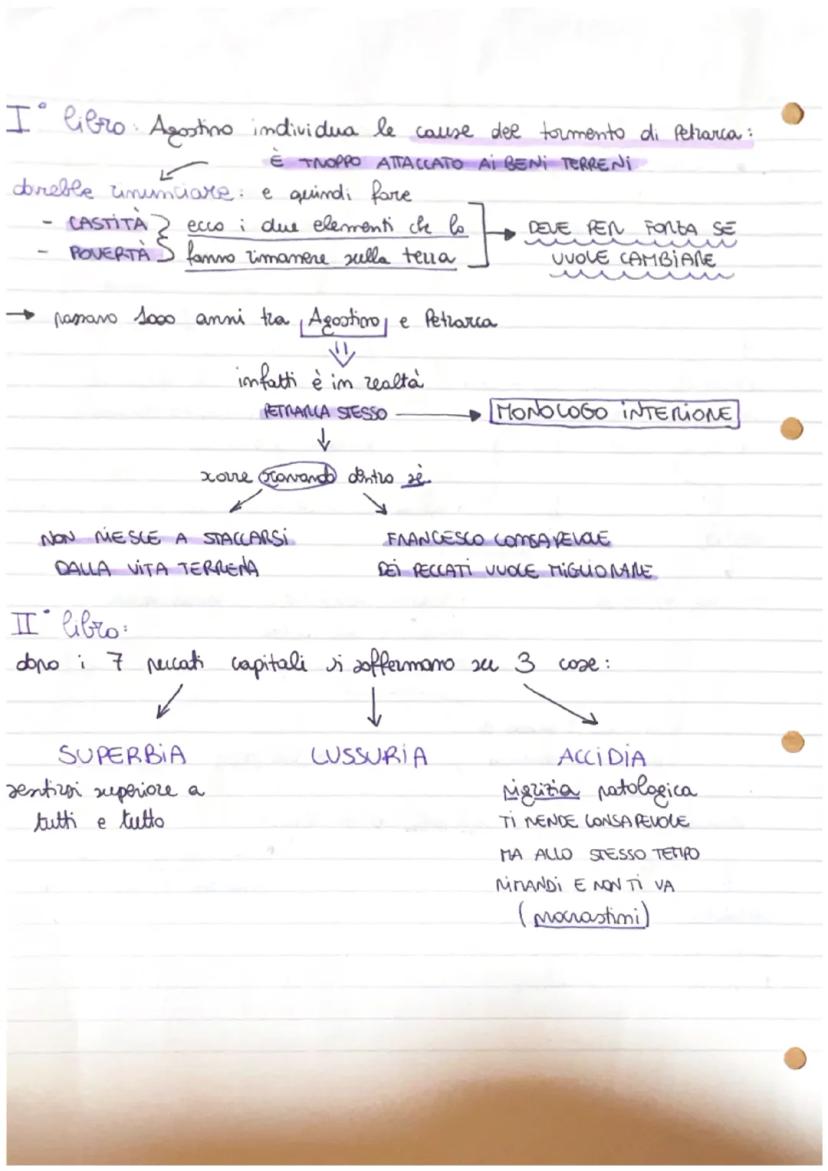 I° libro: Agostino individua le cause del tormento di Petrarca:
È TROPPO ATTACCATO AI BENI TERRENI
dovrebbe rinunciare: e quindi fare
- CASTITÀ } ecco i due elementi che lo
- POVERTÀ } fanno rimanere sulla terra
→ DEVE PER FORZA SE
VUOLE CAMBIARE
→ passano 1000 anni tra Agostino e Petrarca
infatti è in realtà
PETRARCA STESSO → MONOLOGO INTERIORE
scrive scavando dentro sé
NON RIESCE A STACCARSI
DALLA VITA TERRENA
FRANCESCO CONSAPEVOLE
DEI PECCATI VUOLE MIGLIORARE
II° libro:
dopo i 7 peccati capitali si soffermano su 3 cose:
SUPERBIA
sentirsi superiore a
tutti e tutto
LUSSURIA
ACCIDIA
pigrizia patologica
TI RENDE CONSAPEVOLE
MA ALLO STESSO TEMPO
RIMANDI E NON TI VA
(procrastini)